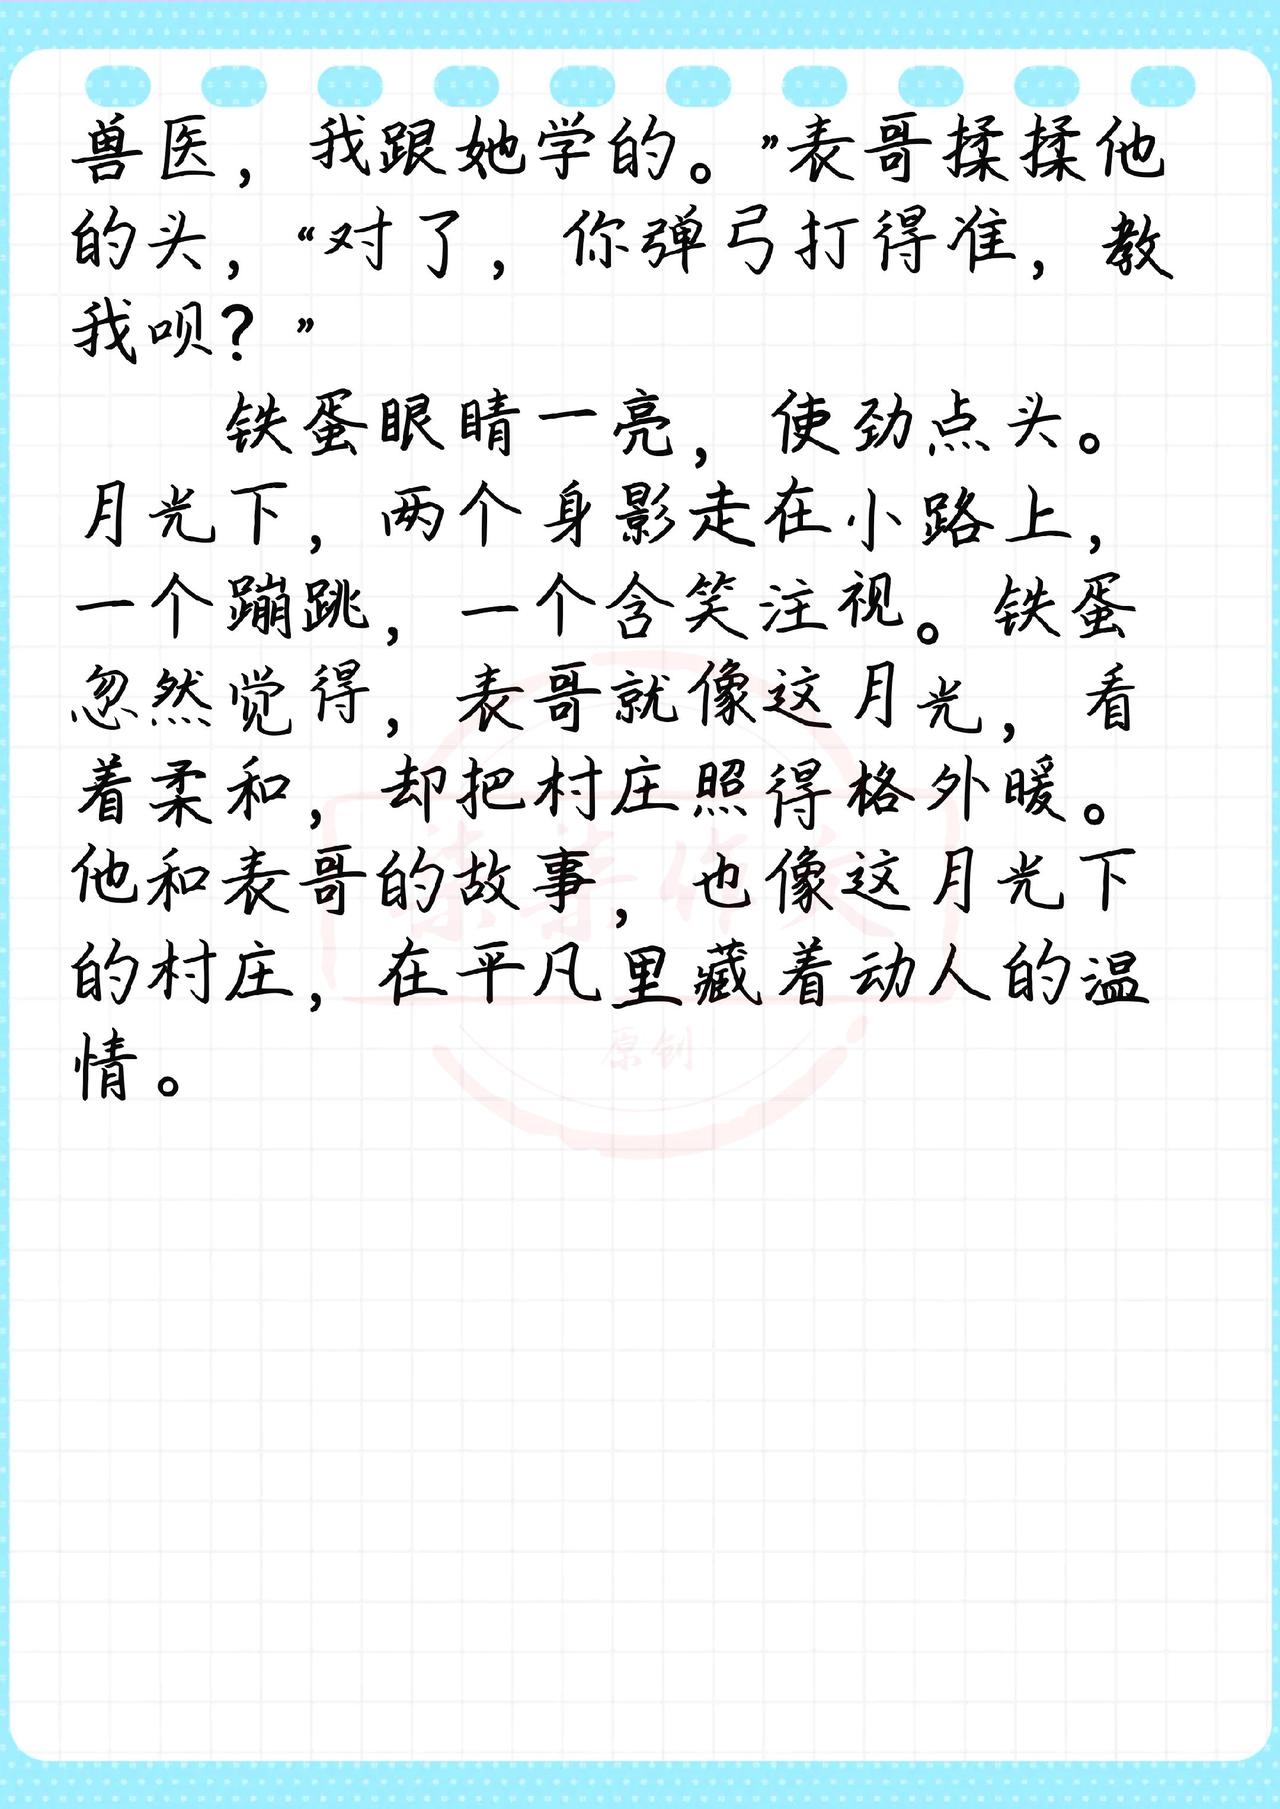 兽医，我跟她学的。”表哥揉揉他
的头，“对了，你弹弓打得准，教
我呗？”
铁蛋眼睛一亮，使劲点头。
月光下，两个身影走在小路上，
一个蹦跳，一个含笑注视。铁蛋
忽然觉得，表哥就像这月光，看
着柔和，却把村庄照得格外暖。
他和表哥的故事，也像这月光下
的村庄，在平凡里藏着动人的温
情。
原创